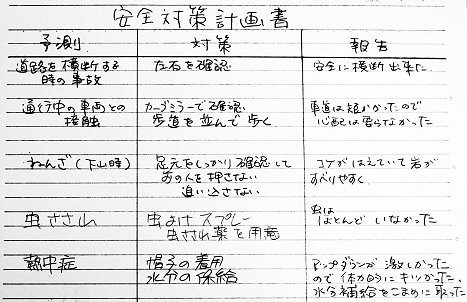 安全対策計画書
予測 対策 報告
道路を横断する 左右を確認 安全に横断出来た
時の事故
通行中の車両との カーブミラーで確認 車道は短かかったので
接触 歩道を並んで歩く 心配は要らなかった
ねんざ(下山時) 足元をしっかり確認して コケがはえていて岩が
前の人を押さない すべりやすく
追い込さない
虫さされ 虫よけスプレー 虫は
虫さされ薬を用意 ほとんどいなかった
熱中症 帽子の着用 アップダウンが激しかった
水分の保給 ので体力的にキツかった。
水分補給をこまめに取った